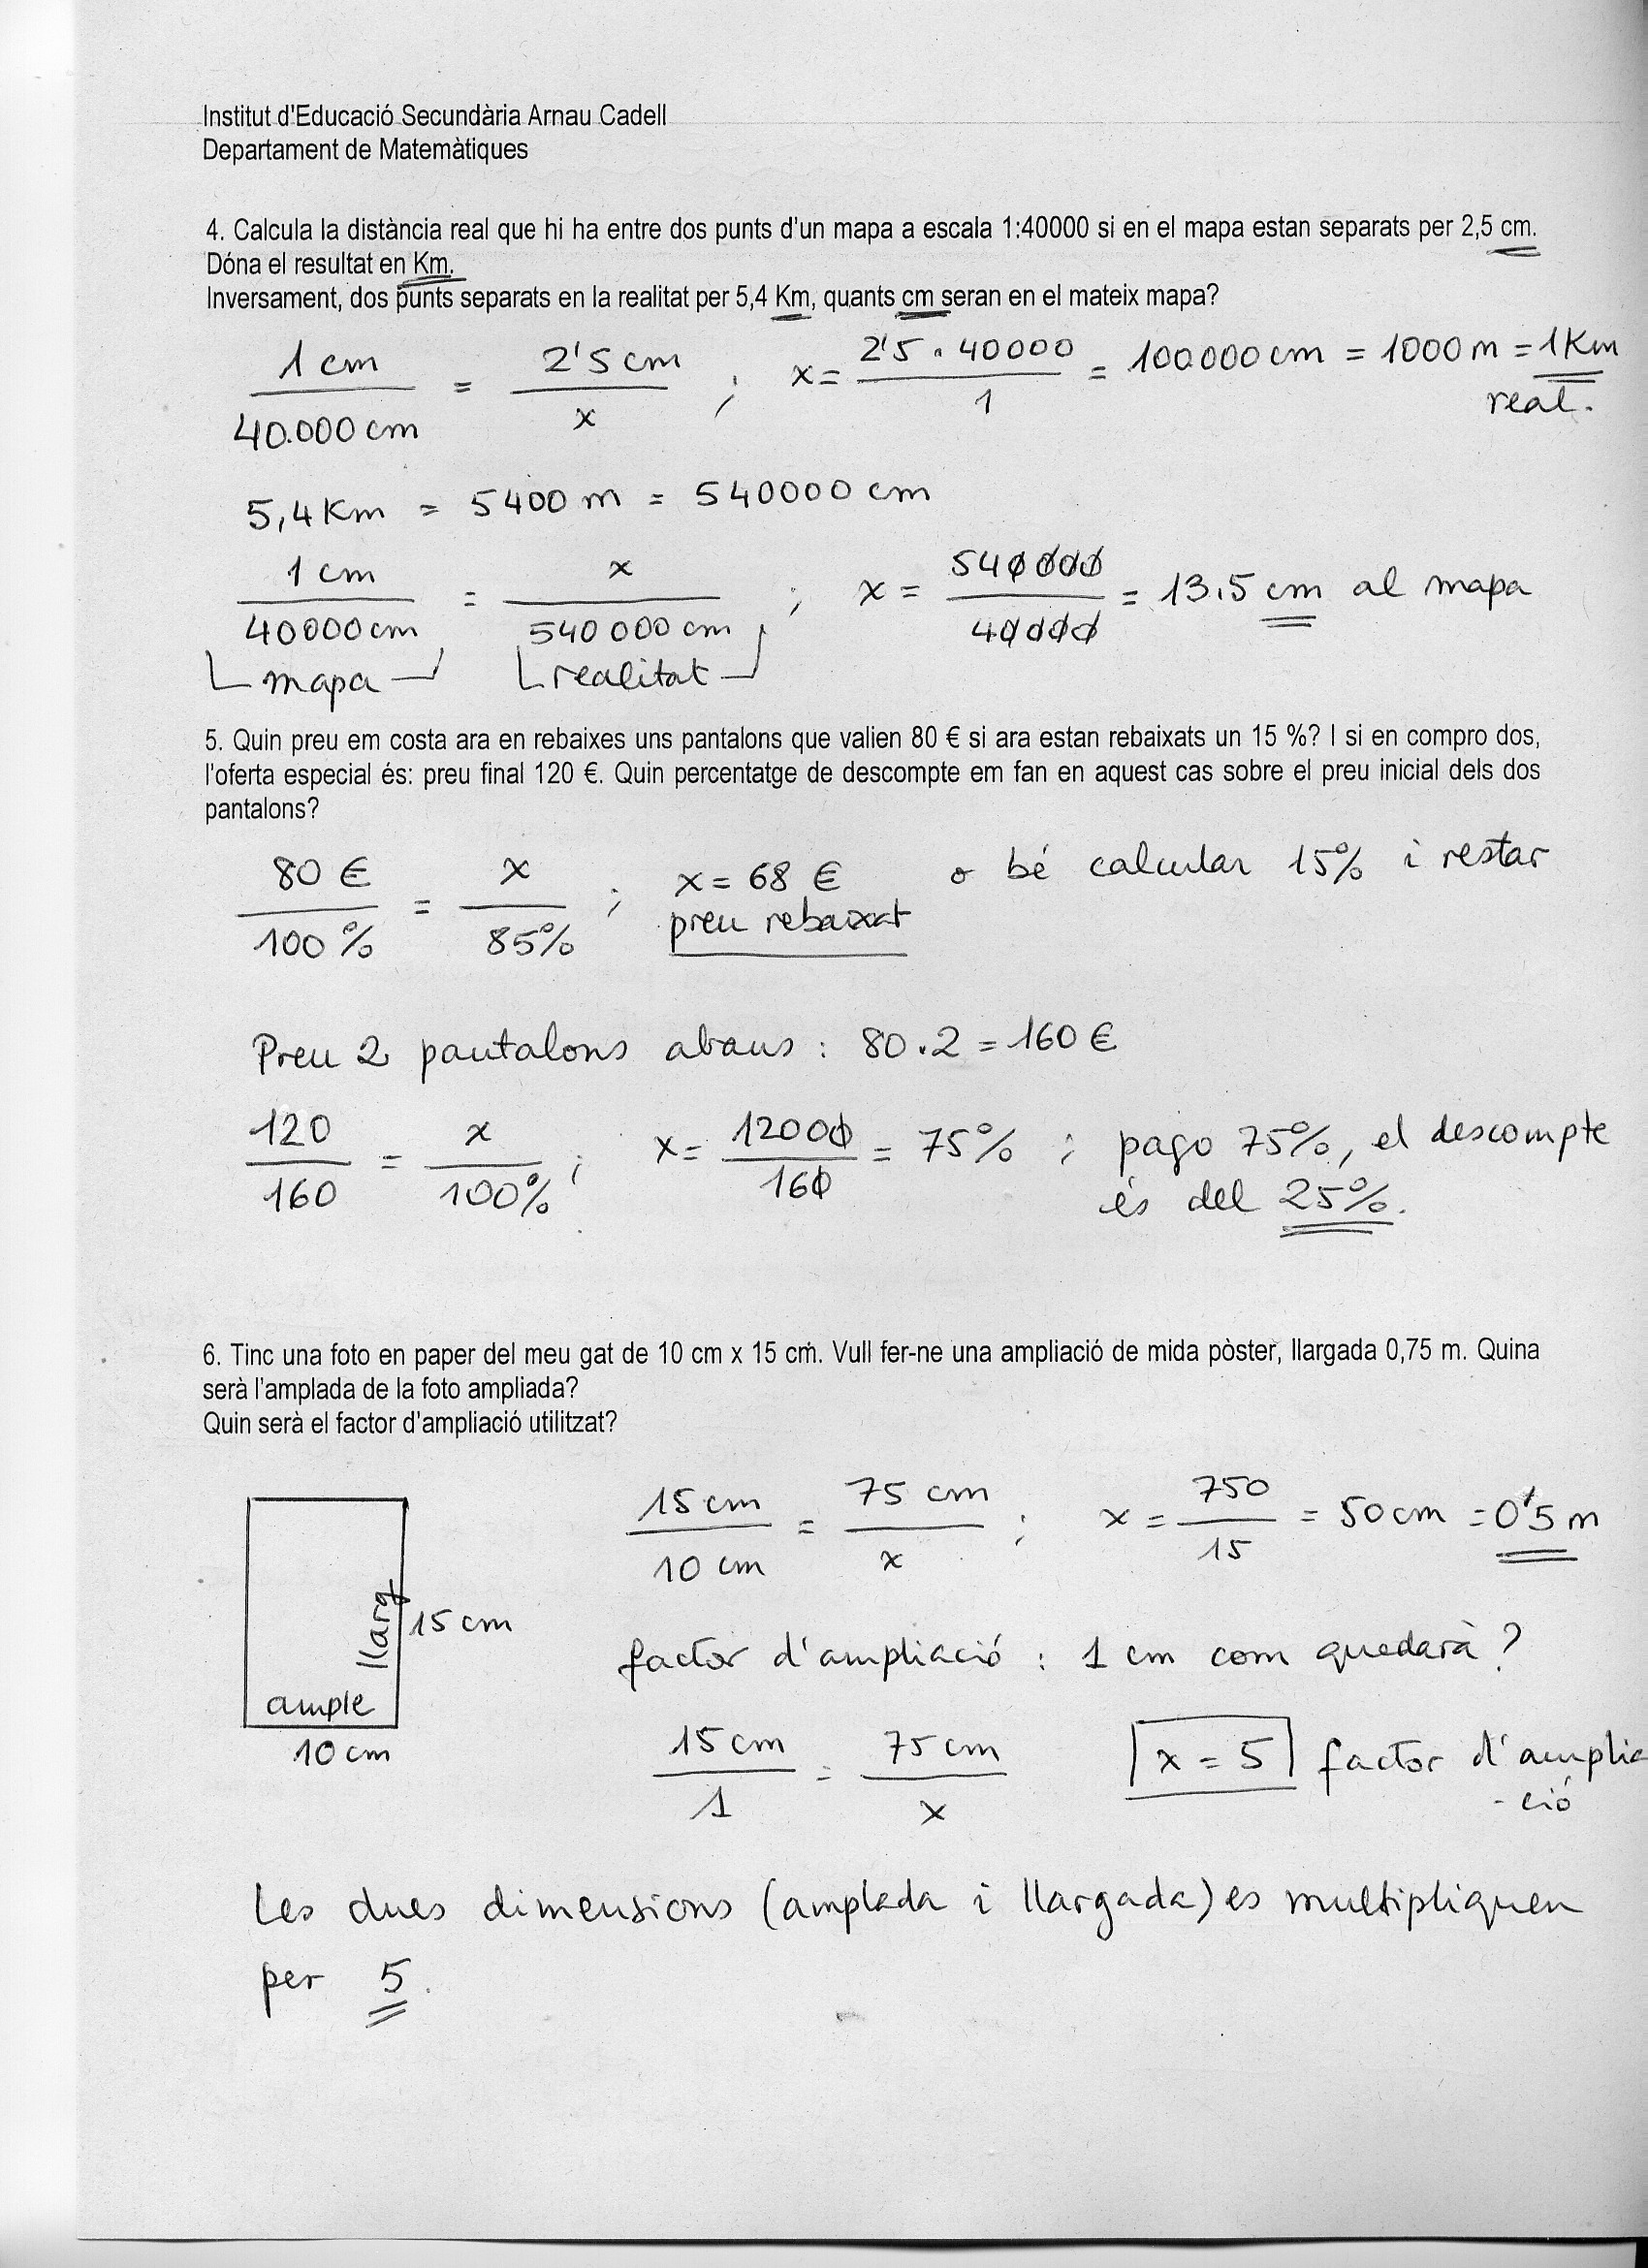 Institut d'Educació Secundària Arnau Cadell
Departament de Matemàtiques
4. Calcula la distància real que hi ha entre dos punts d'un mapa a escala 1:40000 si en el mapa estan separats per 2,5 cm.
Dóna el resultat en Km.
Inversament, dos punts separats en la realitat per 5,4 Km, quants cm seran en el mateix mapa?
1 cm / 40.000 cm = 2'5 cm / x ; x = 2'5 · 40000 / 1 = 100.000 cm = 1000 m = 1 Km
real.
5,4 Km = 5400 m = 540000 cm
1 cm / 40000 cm = x / 540 000 cm ; x = 540000 / 40000 = 13.5 cm al mapa
mapa realitat
5. Quin preu em costa ara en rebaixes uns pantalons que valien 80 € si ara estan rebaixats un 15 %? I si en compro dos,
l'oferta especial és: preu final 120 €. Quin percentatge de descompte em fan en aquest cas sobre el preu inicial dels dos
pantalons?
80 € / 100 % = x / 85% ; x = 68 € o bé calcular 15% i restar
preu rebaixat
Preu 2 pantalons abans : 80 . 2 = 160 €
120 / 160 = x / 100% ; x = 12000 / 160 = 75% ; pago 75%, el descompte
és del 25%.
6. Tinc una foto en paper del meu gat de 10 cm x 15 cm. Vull fer-ne una ampliació de mida pòster, llargada 0,75 m. Quina
serà l'amplada de la foto ampliada?
Quin serà el factor d'ampliació utilitzat?
15 cm / 10 cm = 75 cm / x ; x = 750 / 15 = 50 cm = 0'5 m
llarg 15 cm
ample
10 cm
factor d'ampliació : 1 cm com quedarà ?
15 cm / 1 = 75 cm / x x = 5 factor d'amplia
- ció
Les dues dimensions (amplada i llargada) es multipliquen
per 5.